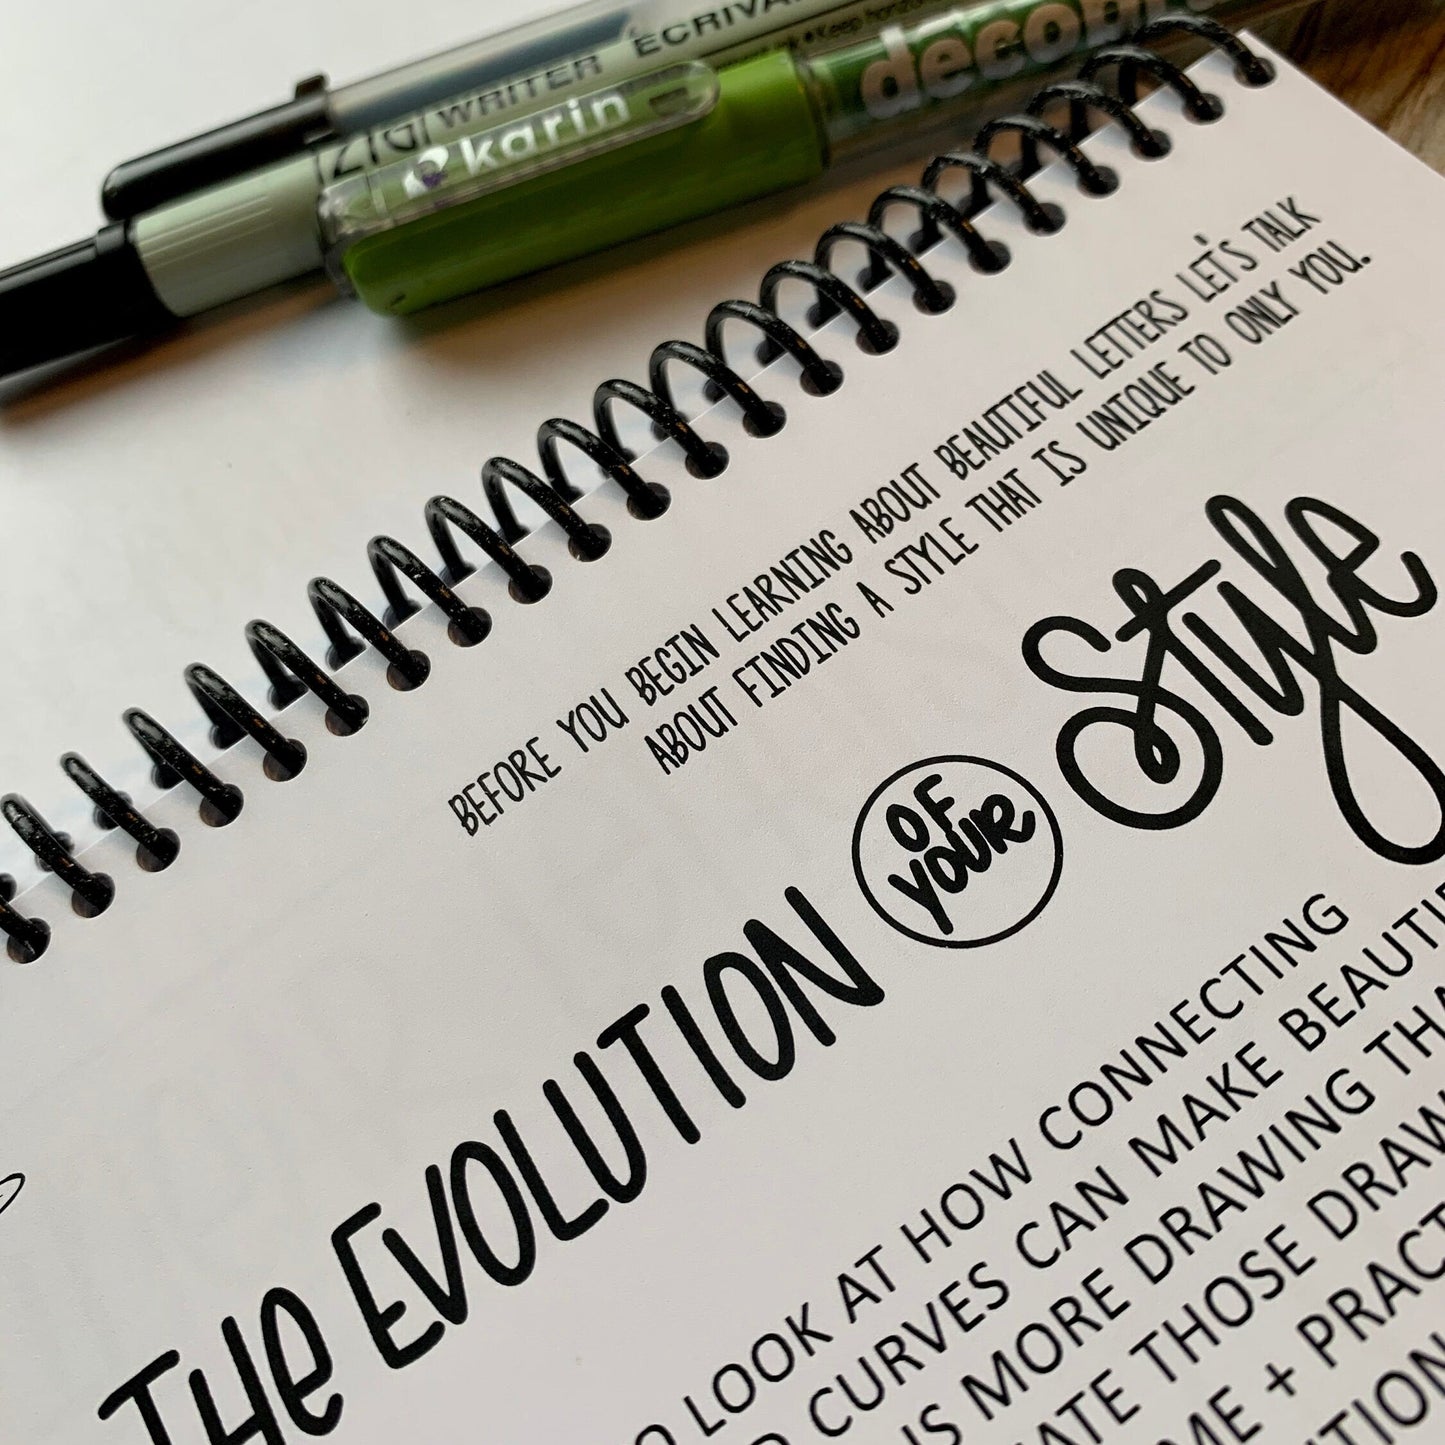 WRITER ÉCRIVA
ZIG
karin
BEFORE YOU BEGIN LEARNING ABOUT BEAUTIFUL LETTERS LET'S TALK
ABOUT FINDING A STYLE THAT IS UNIQUE TO ONLY YOU.
THE EVOLUTION OF YOUR Style
LOOK AT HOW CONNECTING
CURVES CAN MAKE
IS MORE DRAWING
THOSE
+